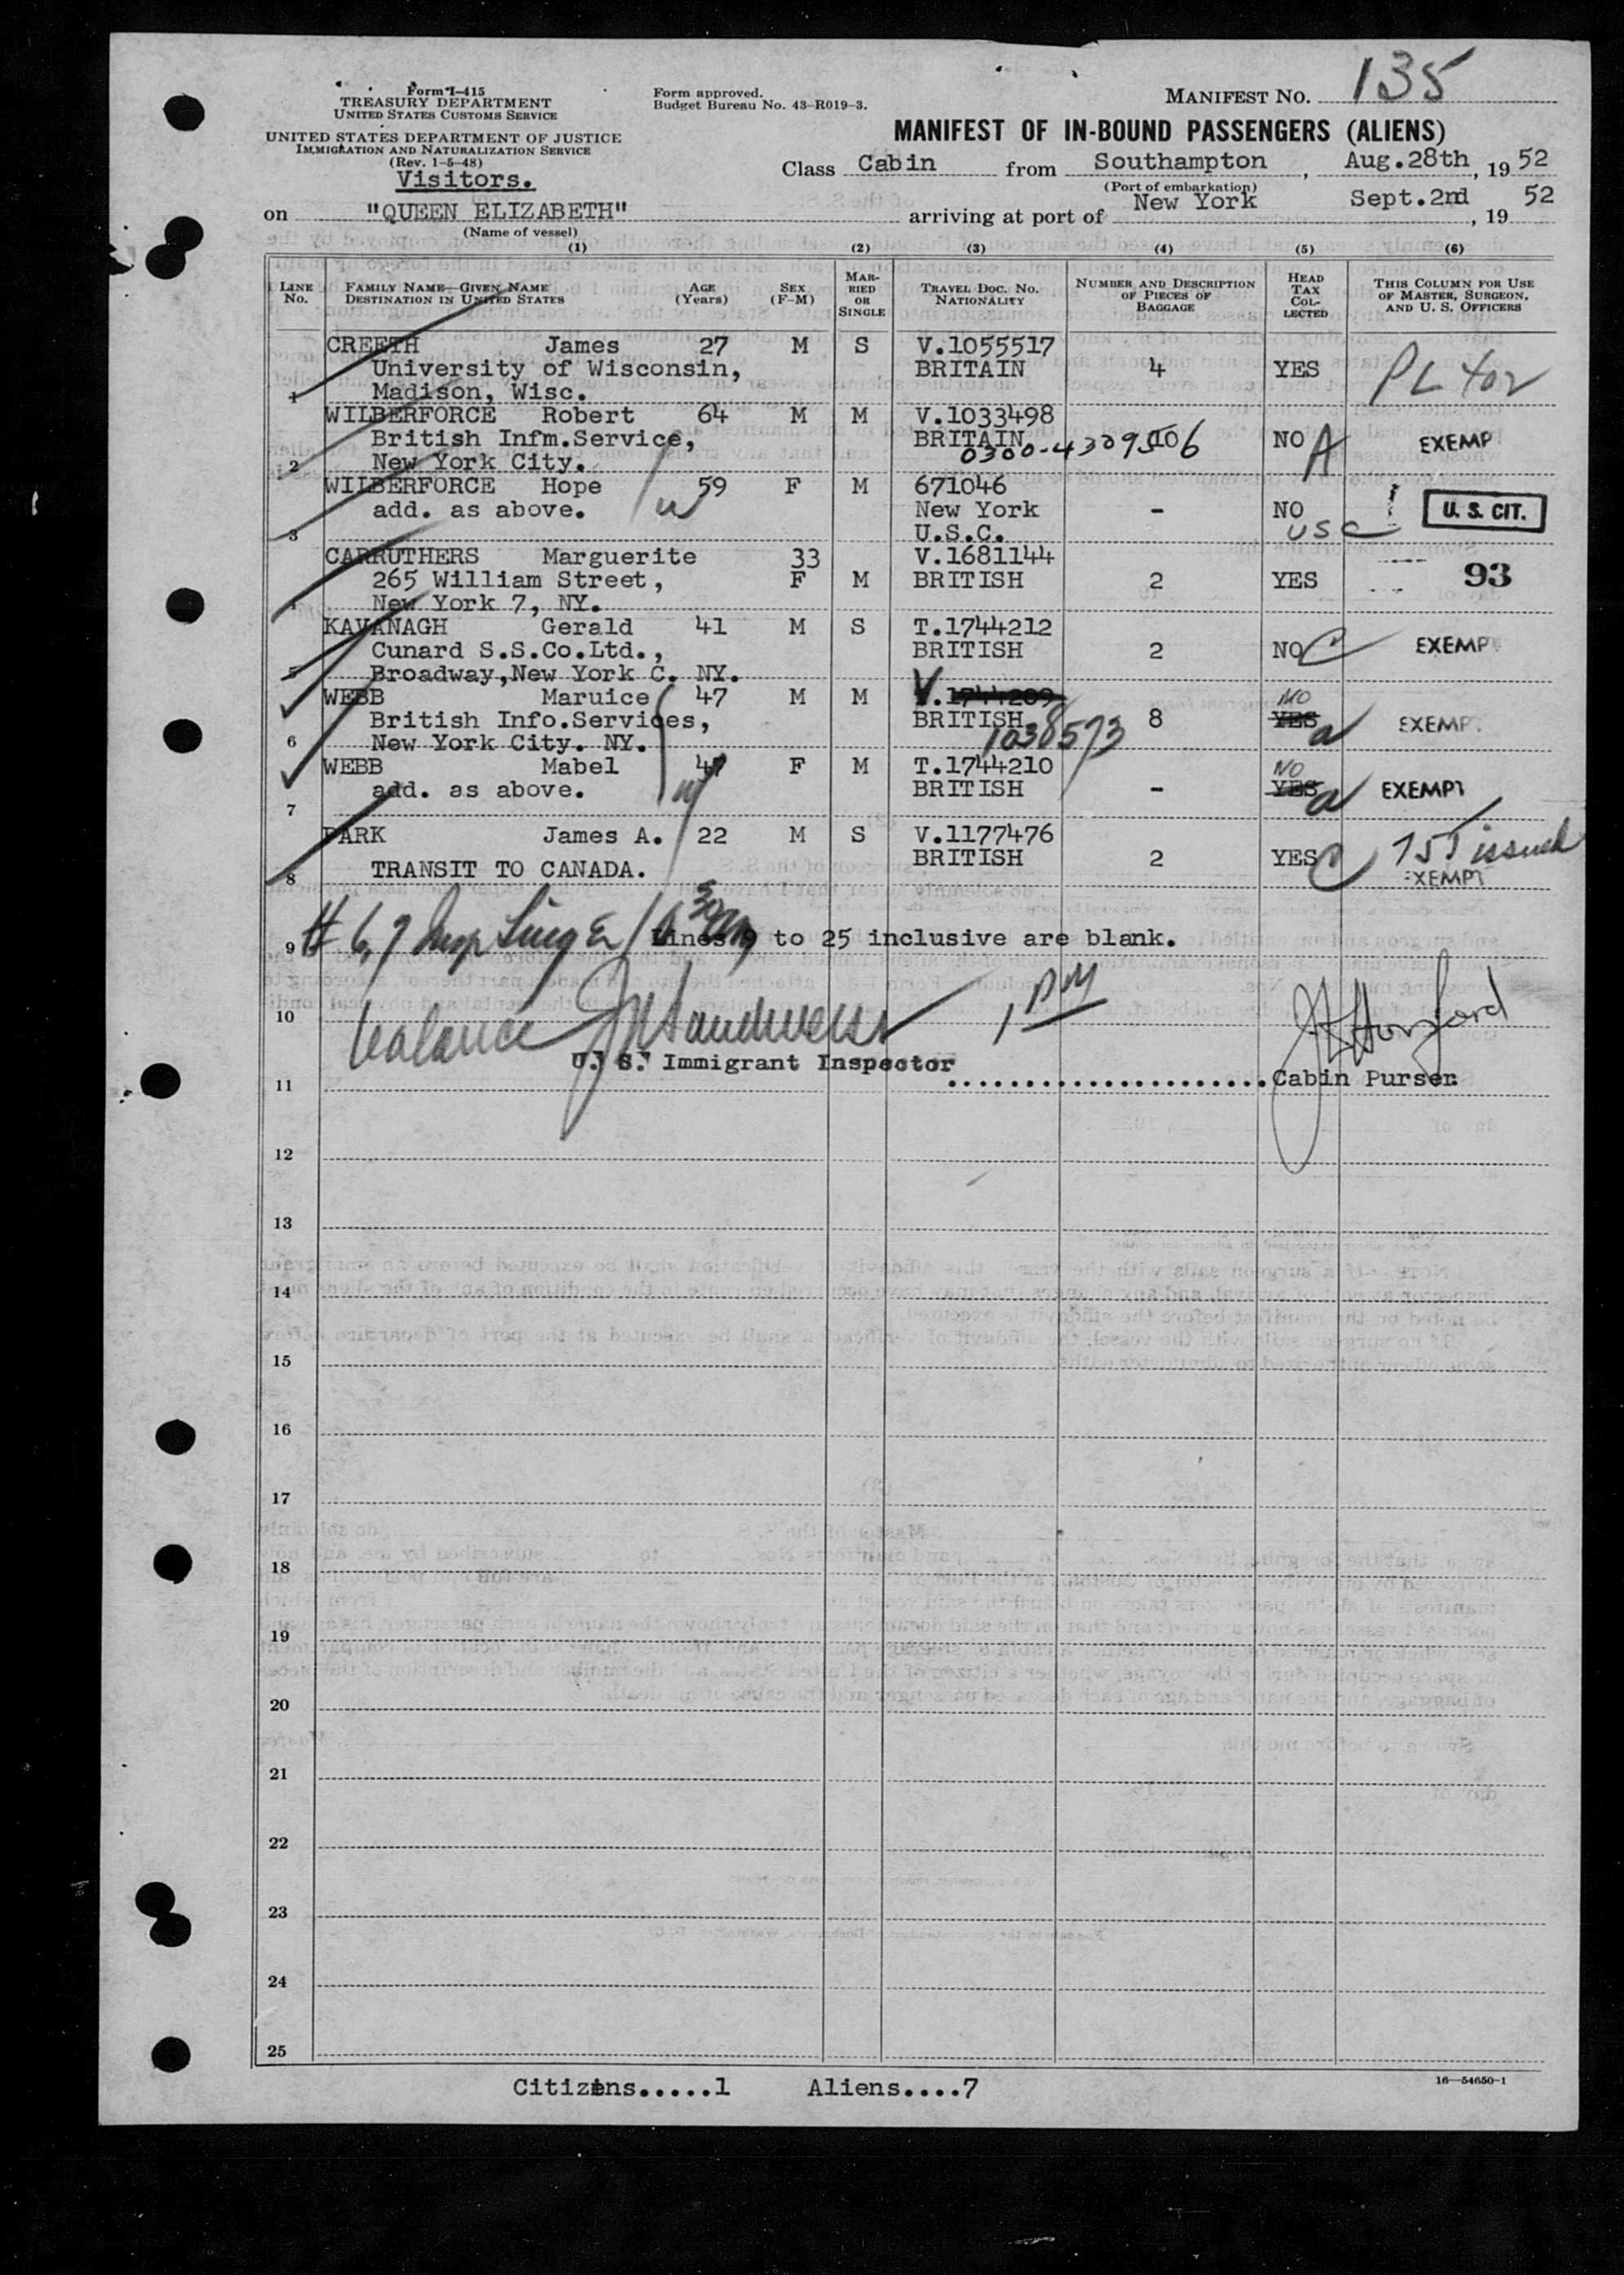 Form I-415
TREASURY DEPARTMENT
UNITED STATES CUSTOMS SERVICE
UNITED STATES DEPARTMENT OF JUSTICE
IMMIGRATION AND NATURALIZATION SERVICE
(Rev. 1-5-48)
Visitors.
Form approved.
Budget Bureau No. 43-R019-3.
MANIFEST NO. 135
MANIFEST OF IN-BOUND PASSENGERS (ALIENS)
Class Cabin from Southampton, Aug.28th, 19 52
(Port of embarkation)
on "QUEEN ELIZABETH" arriving at port of New York Sept.2nd, 19 52
(Name of vessel)
(1) (2) (3) (4) (5) (6)
LINE No. FAMILY NAME—GIVEN NAME DESTINATION IN UNITED STATES AGE (Years) SEX (F-M) MARRIED OR SINGLE TRAVEL DOC. NO. NATIONALITY NUMBER AND DESCRIPTION OF PIECES OF BAGGAGE HEAD TAX COLLECTED THIS COLUMN FOR USE OF MASTER, SURGEON, AND U. S. OFFICERS
CREETH James 27 M S V.1055517
University of Wisconsin, BRITAIN 4 YES
1 Madison, Wisc.
WILBERFORCE Robert 64 M M V.1033498
British Infm.Service, BRITAIN 10 NO A EXEMP
2 New York City. 0300-4309506
WILBERFORCE Hope 59 F M 671046
add. as above. New York - NO U. S. CIT.
3 U.S.C. USC
CARRUTHERS Marguerite 33 V.1681144
265 William Street, F M BRITISH 2 YES 93
4 New York 7, NY.
KAVANAGH Gerald 41 M S T.1744212
Cunard S.S.Co.Ltd., BRITISH 2 NO C EXEMP
5 Broadway,New York C. NY.
WEBB Maruice 47 M M V.1744209 NO
British Info.Services, BRITISH 8 YES a EXEMP
6 New York City. NY. 1038573
WEBB Mabel 47 F M T.1744210 NO
add. as above. BRITISH - YES a EXEMPT
7
PARK James A. 22 M S V.1177476
BRITISH 2 YES C 155 issued
8 TRANSIT TO CANADA. EXEMPT
9 # 6,7 Insp Lines 9 to 25 inclusive are blank.
10 balance 1 PM
U. S. Immigrant Inspector
11 ......................Cabin Purser.
12
13
14
15
16
17
18
19
20
21
22
23
24
25
Citizens.....1 Aliens....7
16—54650-1